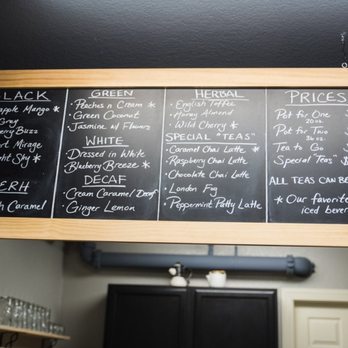 LACK
apple Mango *
Grey
erry Buzz
rt Mirage
ght Sky *
ERH
h Caramel
GREEN
Peaches n Cream *
Green Coconut
Jasmine w/ Flowers
WHITE
Dressed in White
Blueberry Breeze *
DECAF
Cream Caramel Decaf
Ginger Lemon
HERBAL
English Toffee
Honey Almond
Wild Cherry *
SPECIAL "TEAS"
Caramel Chai Latte *
Raspberry Chai Latte
Chocolate Chai Latte
London Fog
Peppermint Patty Latte
PRICES
Pot for One
20 oz.
Pot for Two
36 oz.
Tea to Go
Special "Teas" $
ALL TEAS CAN BE
* Our favorite
iced bever